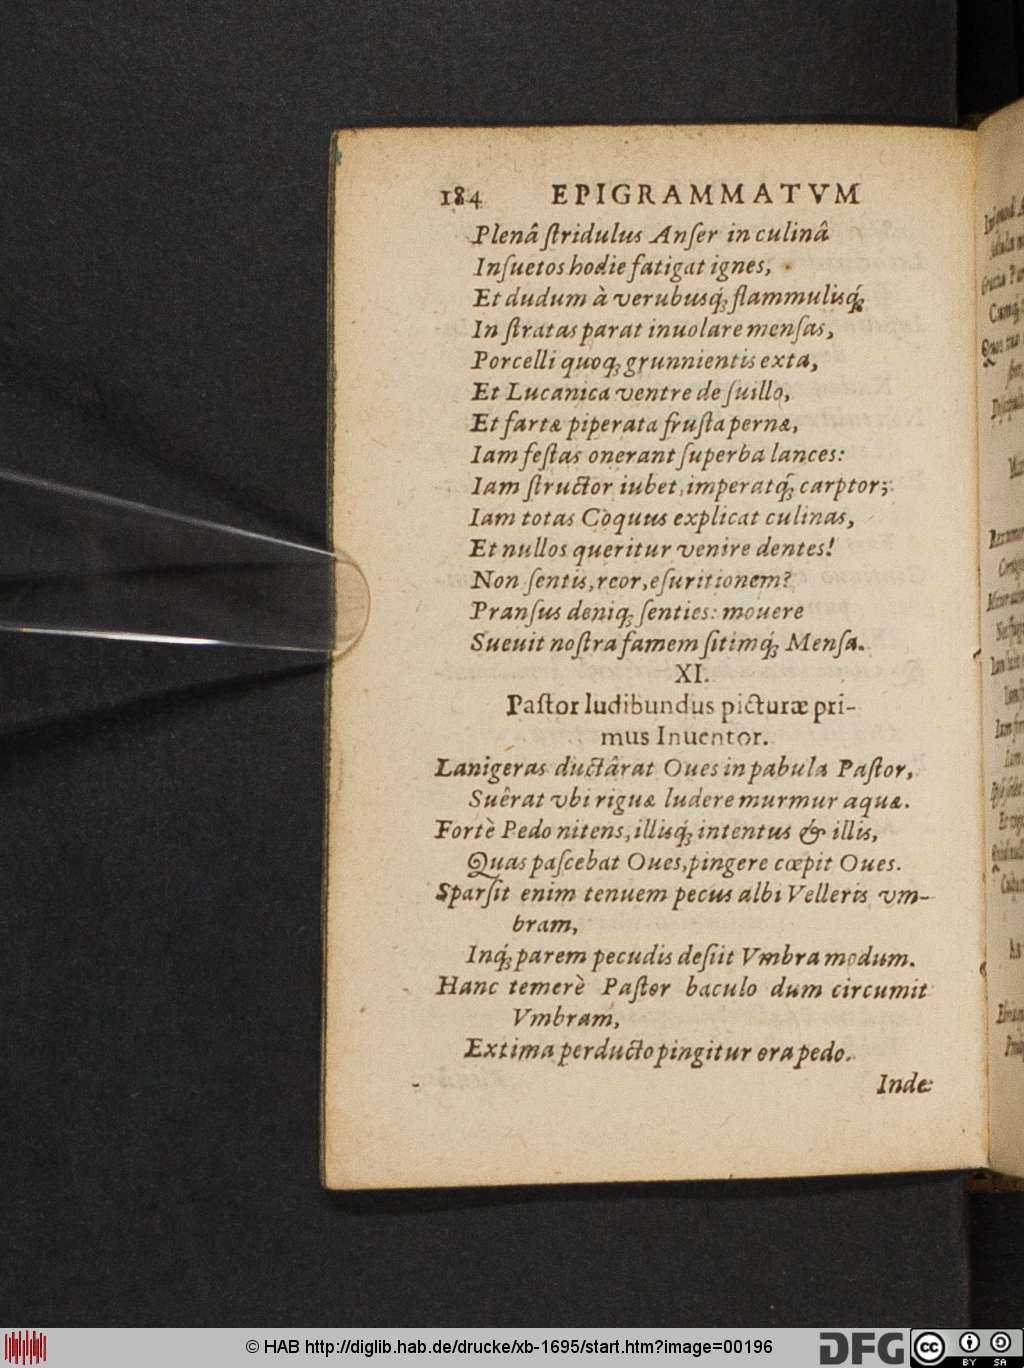 184 EPIGRAMMATVM
Plenâ ſtridulus Anſer in culinâ
Inſuetos hodie fatigat ignes,
Et dudum à verubusq́; flammulisq́;
In ſtratas parat inuolare menſas,
Porcelli quoq; grunnientis exta,
Et Lucanica ventre de ſuillo,
Et fartæ piperata fruſta pernæ,
Iam feſtas onerant ſuperba lances:
Iam ſtructor iubet, imperatq́; carptor;
Iam totas Coquus explicat culinas,
Et nullos queritur venire dentes!
Non ſentis, reor, eſuritionem?
Pranſus deniq; ſenties: mouere
Sueuit noſtra famem ſitimq́; Menſa.
XI.
Paſtor ludibundus picturæ pri-
mus Inuentor.
Lanigeras ductârat Oues in pabula Paſtor,
Suêrat vbi riguæ ludere murmur aquæ.
Fortè Pedo nitens, illisq́; intentus & illis,
Quas paſcebat Oues, pingere cœpit Oues.
Sparſit enim tenuem pecus albi Velleris vm-
bram,
Inq́; parem pecudis deſiit Vmbra modum.
Hanc temerè Paſtor baculo dum circumit
Vmbram,
Extima perducto pingitur ora pedo.
Inde
© HAB http://diglib.hab.de/drucke/xb-1695/start.htm?image=00196
DFG
cc
BY SA